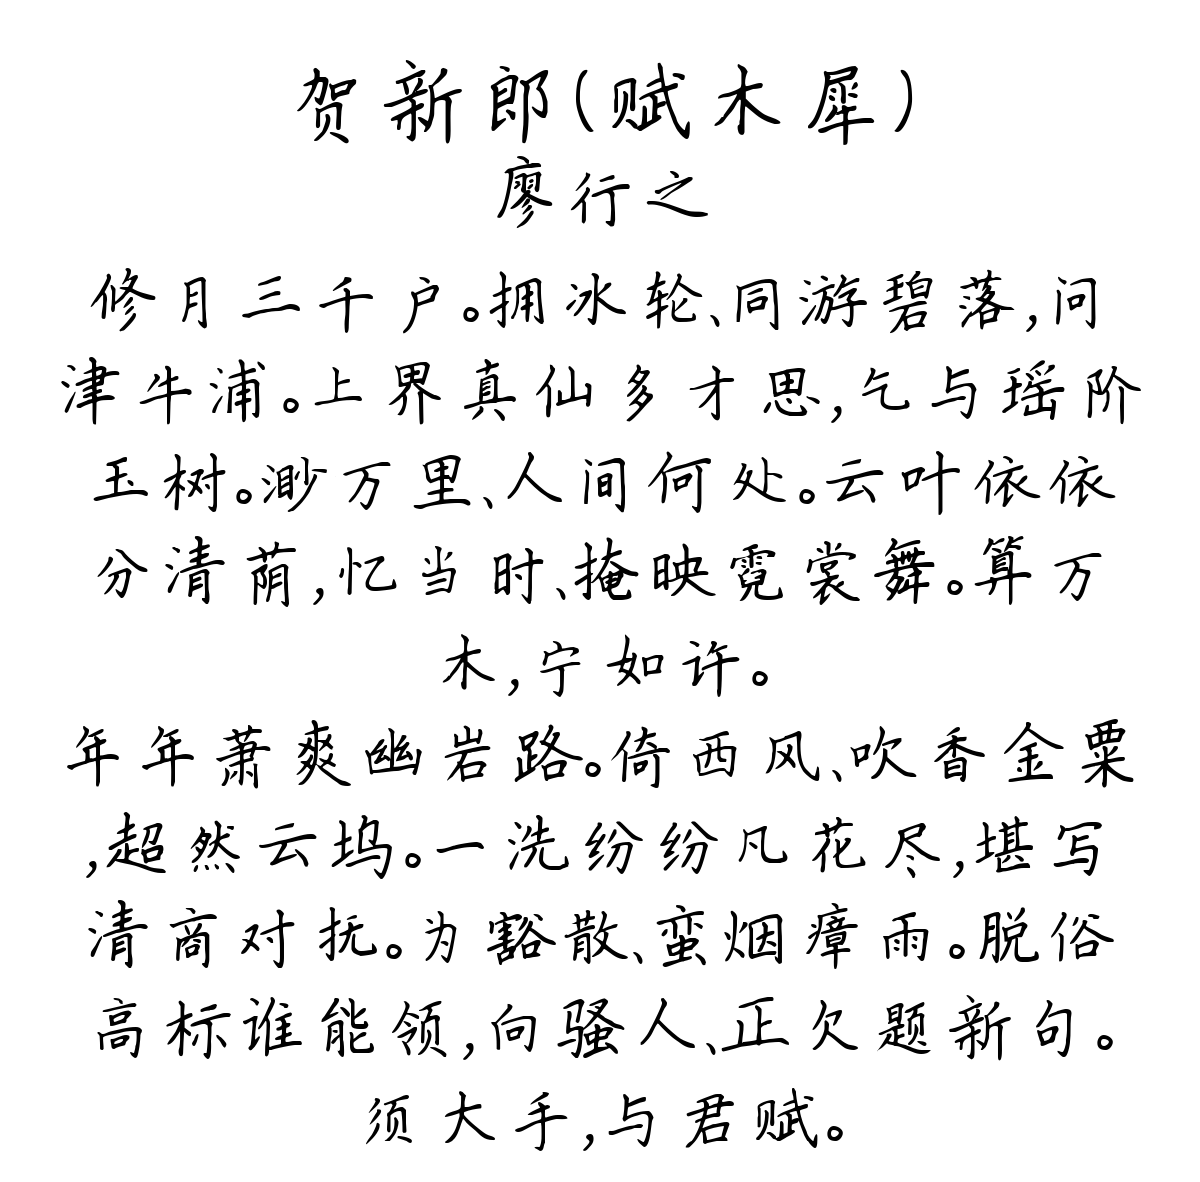 贺新郎(赋木犀)
廖行之
修月三千户。拥冰轮、同游碧落,问
津牛浦。上界真仙多才思,乞与瑶阶
玉树。渺万里、人间何处。云叶依依
分清荫,忆当时、掩映霓裳舞。算万
木,宁如许。
年年萧爽幽岩路。倚西风、吹香金粟
,超然云坞。一洗纷纷凡花尽,堪写
清商对抚。为豁散、蛮烟瘴雨。脱俗
高标谁能领,向骚人、正欠题新句。
须大手,与君赋。